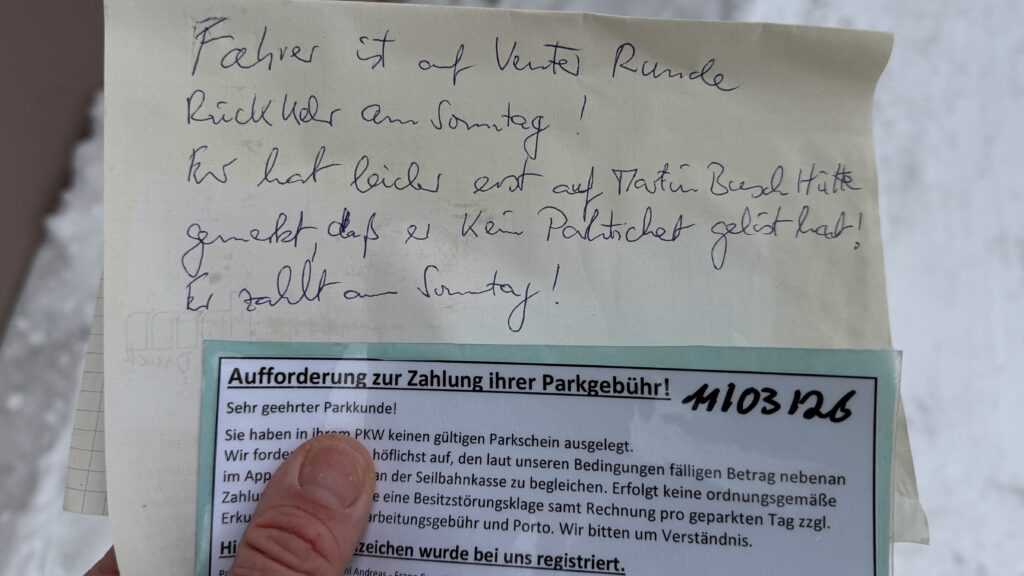 Fahrer ist auf Venter Runde
Rückkehr am Sonntag!
Er hat leider erst auf Martin Busch Hütte
gemerkt, daß er kein Parkticket gelöst hat!
Er zahlt am Sonntag!
Aufforderung zur Zahlung ihrer Parkgebühr! 11/03/26
Sehr geehrter Parkkunde!
Sie haben in ihrem PKW keinen gültigen Parkschein ausgelegt.
Wir forder höflichst auf, den laut unseren Bedingungen fälligen Betrag nebenan
im App an der Seilbahnkasse zu begleichen. Erfolgt keine ordnungsgemäße
Zahlu e eine Besitzstörungsklage samt Rechnung pro geparkten Tag zzgl.
Erku arbeitungsgebühr und Porto. Wir bitten um Verständnis.
Hi zeichen wurde bei uns registriert.
Andreas